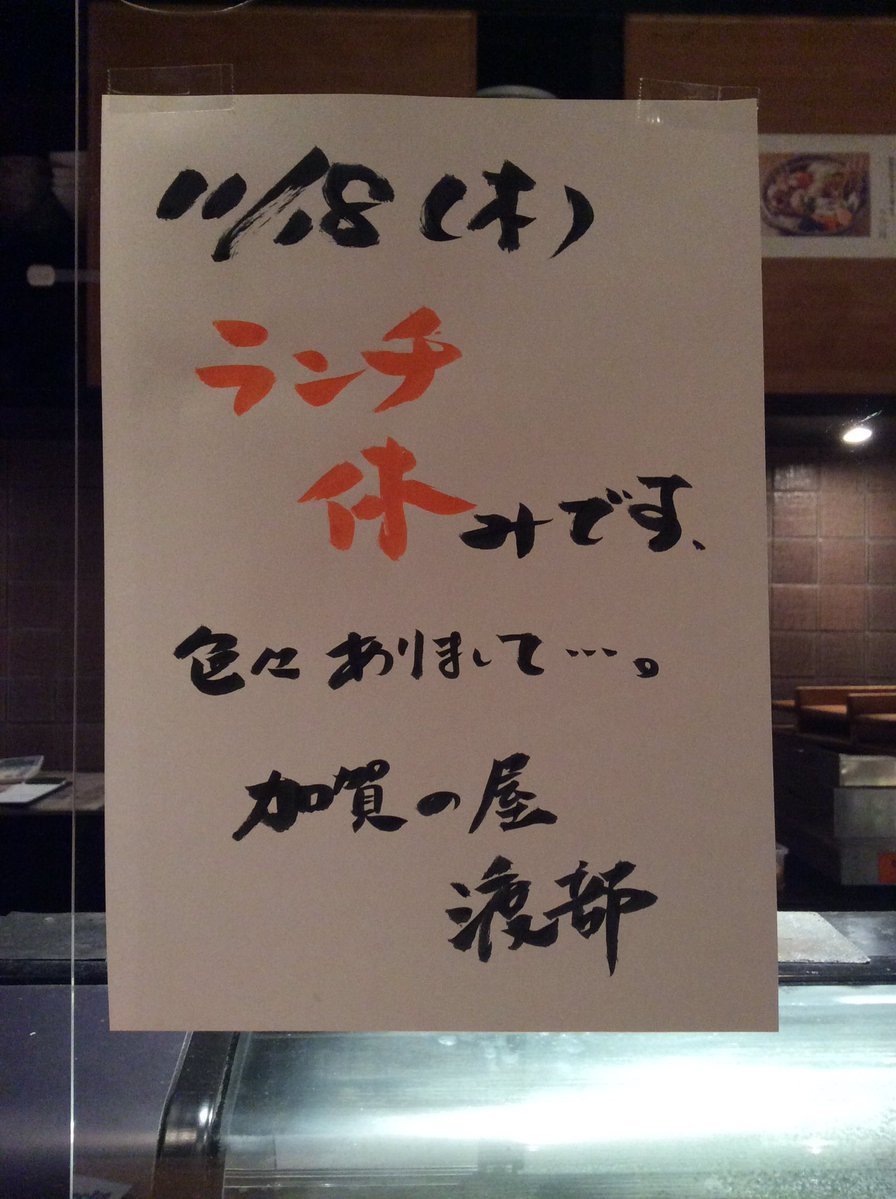 11/18(木)
ランチ
休みです、
色々ありまして…。
加賀の屋
渡部